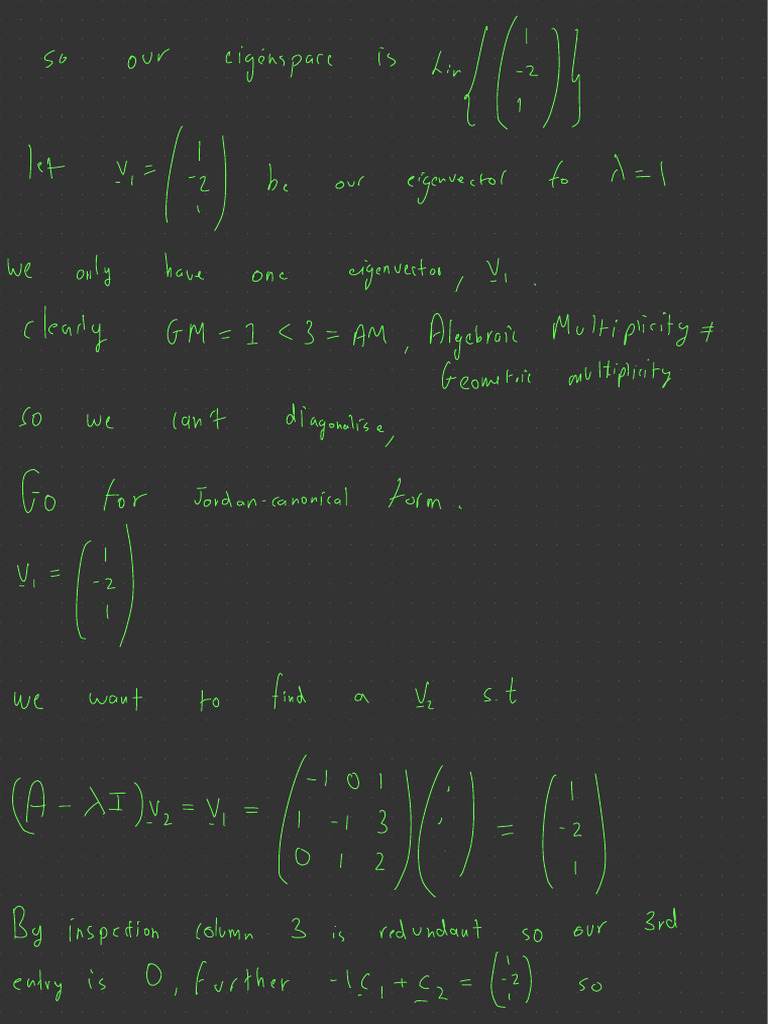 so our eigenspace is Lin{(1 -2 1)}
let v₁ = (1 -2 1) be our eigenvector to λ = 1
we only have one eigenvector, v₁.
clearly GM = 1 < 3 = AM, Algebraic Multiplicity ≠
Geometric multiplicity
so we can't diagonalise,
Go for Jordan-canonical form.
v₁ = (1 -2 1)
we want to find a v₂ s.t
(A - λI)v₂ = v₁ = (-1 0 1 1 -1 3 0 1 2)(. . .) = (1 -2 1)
By inspection column 3 is redundant so our 3rd
entry is 0, further -1c₁ + c₂ = (1 -2 1) so